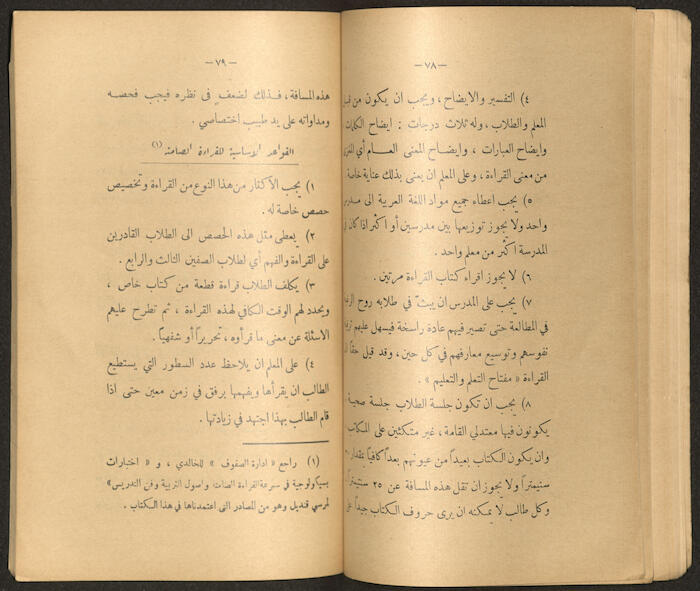 — ٧٨ —
٤) التفسير والايضاح ، ويجب ان يكون من
المعلم والطلاب ، وله ثلاث درجات : ايضاح الكلمات
وايضاح العبارات ، وايضاح المعنى العام أي
من معنى القراءة ، وعلى المعلم ان يعنى بذلك عناية خاصة
٥) يجب اعطاء جميع مواد اللغة العربية الى
واحد ولا يجوز توزيعها بين مدرسين أو اكثر اذا كان
المدرسة اكثر من معلم واحد .
٦) لا يجوز اقراء كتاب القراءة مرتين .
٧) يجب على المدرس ان يبثّ في طلابه روح
في المطالعة حتى تصير فيهم عادة راسخة فيسهل عليهم
نفوسهم وتوسيع معارفهم في كل حين ، وقد قيل حقاً
القراءة « مفتاح التعلم والتعليم » .
٨) يجب ان تكون جلسة الطلاب جلسة صحية
يكونون فيها معتدلي القامة ، غير متكئين على
وان يكون الكتاب بعيداً من عيونهم بعداً كافياً بمقدار
سنيمتراً ولا يجوز ان تقل هذه المسافة عن ٢٥ سنتيمتراً
وكل طالب لا يمكنه ان يرى حروف الكتاب جيداً
— ٧٩ —
هذه المسافة ، فذلك لضعف في نظره فيجب فحصه
ومداواته على يد طبيب اختصاصي .
القواعد الاساسية للقراءة الصامتة (١)
١) يجب الاكثار من هذا النوع من القراءة وتخصيص
حصص خاصة له .
٢) يعطى مثل هذه الحصص الى الطلاب القادرين
على القراءة والفهم أي لطلاب الصفين الثالث والرابع .
٣) يكلف الطلاب قراءة قطعة من كتاب خاص ،
ويحدد لهم الوقت الكافي لهذه القراءة ، ثم تطرح عليهم
الاسئلة عن معنى ما قرأوه ، تحريراً أو شفهياً .
٤) على المعلم ان يلاحظ عدد السطور التي يستطيع
الطالب ان يقرأها ويفهمها برفق في زمن معين حتى اذا
قام الطالب بهذا اجتهد في زيادتها .
(١) راجع « ادارة الصفوف » للخالدي ، و « اختبارات
بسيكولوجية في سرعة القراءة الصامتة واصول التربية وفن التدريس »
لمرسي قنديل وهو من المصادر التي اعتمدناها في هذا الكتاب .